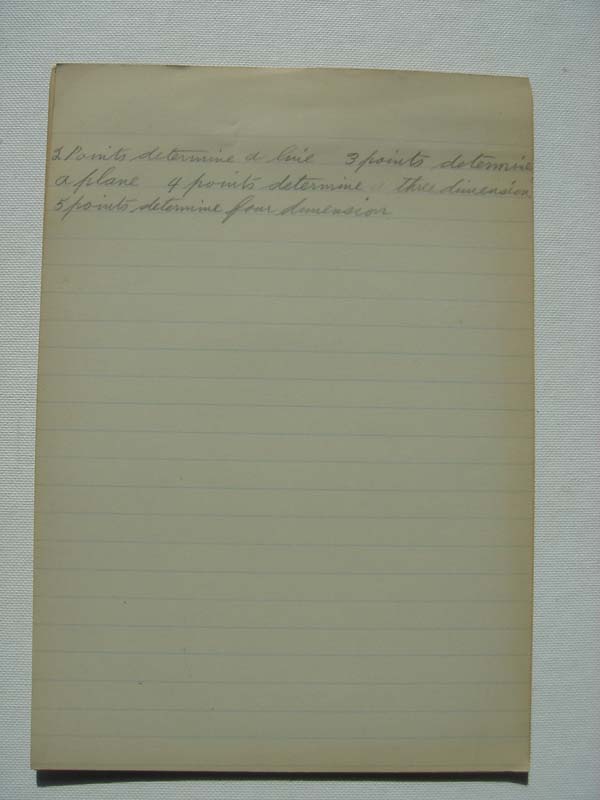 2 Points determine a line 3 points determine
a plane 4 points determine a three dimension
5 points determine four dimension